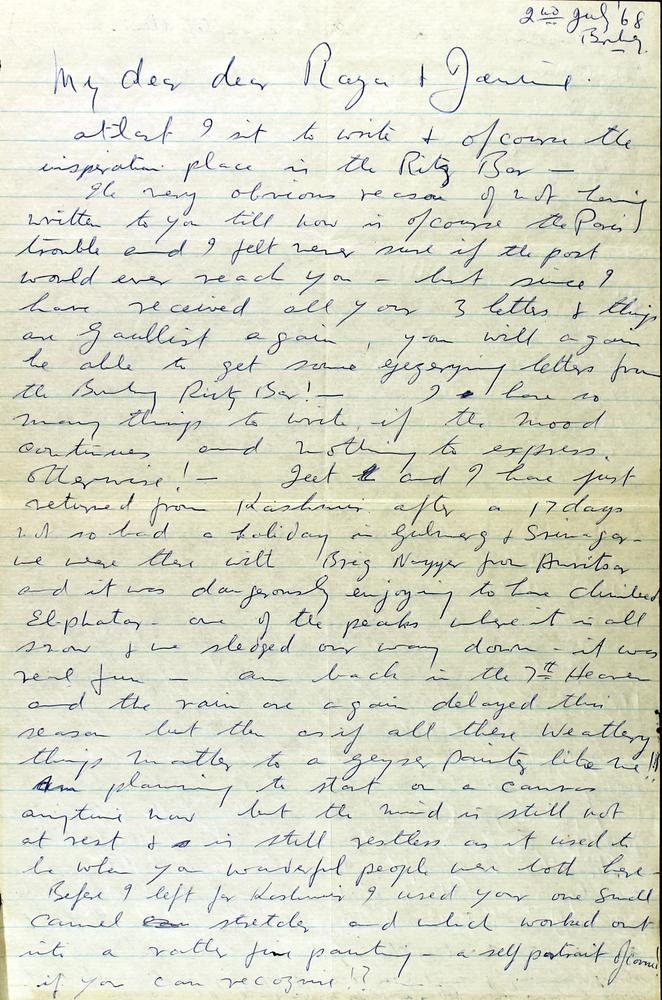 2nd July '68
Bombay.
My dear dear Raza & Janine.
atlast I sit to write & ofcourse the
inspiration place is the Ritz Bar —
The very obvious reason of not having
written to you till now is ofcourse the Paris
trouble and I felt never sure if the post
would ever reach you — but since I
have received all your 3 letters & things
are Gaullist again, you will again
be able to get some letters from
the Bombay Ritz Bar! — I have so
many things to write, if the mood
continues and nothing to express.
otherwise! — Jeet and I have just
returned from Kashmir after a 17 days
not so bad a holiday in Gulmarg & Srinagar —
we were there with Brig Nayyer from Amritsar
and it was dangerously enjoying to have climbed
El-phatar — one of the peaks where it is all
snow & we sledged our way down — it was
real fun — am back in the 7th Heaven
and the rain are again delayed this
season but then as if all these weathery
things matter to a geyser painter like me!!
Am planning to start on a canvas
anytime now but the mind is still not
at rest & is still restless as it used to
be when you wonderful people were both here —
Before I left for Kashmir I used your one small
stretcher and which worked out
into a rather fine painting — a self portrait ofcourse
if you can recognise!?